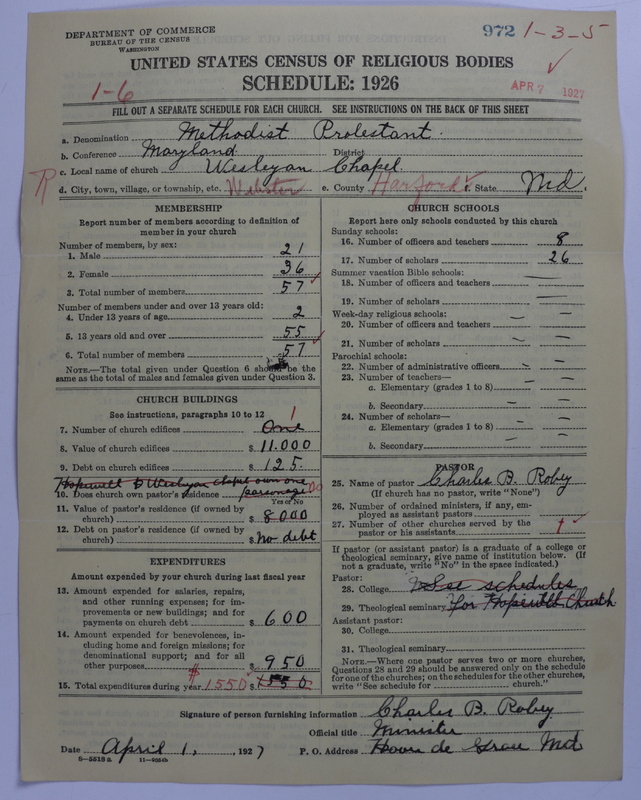 DEPARTMENT OF COMMERCE
BUREAU OF THE CENSUS
WASHINGTON
972 1-3-5
UNITED STATES CENSUS OF RELIGIOUS BODIES
SCHEDULE: 1926
1-6
APR 7 1927
FILL OUT A SEPARATE SCHEDULE FOR EACH CHURCH. SEE INSTRUCTIONS ON THE BACK OF THIS SHEET
a. Denomination Methodist Protestant.
b. Conference Maryland. District
c. Local name of church Wesleyan Chapel.
d. City, town, village, or township, etc. Webster e. County Harford f. State Md.
MEMBERSHIP
Report number of members according to definition of
member in your church
Number of members, by sex:
1. Male 21
2. Female 36
3. Total number of members 57
Number of members under and over 13 years old:
4. Under 13 years of age 2
5. 13 years old and over 55
6. Total number of members 57
NOTE.—The total given under Question 6 should be the
same as the total of males and females given under Question 3.
CHURCH BUILDINGS
See instructions, paragraphs 10 to 12
7. Number of church edifices One 1
8. Value of church edifices $ 11.000
9. Debt on church edifices $ 125.
Hopewell & Wesleyan chapel own one
10. Does church own pastor's residence parsonage no
Yes or No
11. Value of pastor's residence (if owned by
church) $ 8000
12. Debt on pastor's residence (if owned by
church) $ no debt
EXPENDITURES
Amount expended by your church during last fiscal year
13. Amount expended for salaries, repairs,
and other running expenses; for im-
provements or new buildings; and for
payments on church debt $ 600
14. Amount expended for benevolences, in-
cluding home and foreign missions; for
denominational support; and for all
other purposes $ 950
15. Total expenditures during year $1550 $ 1550
CHURCH SCHOOLS
Report here only schools conducted by this church
Sunday schools:
16. Number of officers and teachers 8
17. Number of scholars 26
Summer vacation Bible schools:
18. Number of officers and teachers
19. Number of scholars —
Week-day religious schools:
20. Number of officers and teachers — —
21. Number of scholars — —
Parochial schools:
22. Number of administrative officers — —
23. Number of teachers—
a. Elementary (grades 1 to 8) —
b. Secondary — —
24. Number of scholars—
a. Elementary (grades 1 to 8) — —
b. Secondary — —
PASTOR
25. Name of pastor Charles B. Roby
(If church has no pastor, write "None")
26. Number of ordained ministers, if any, em-
ployed as assistant pastors
27. Number of other churches served by the
pastor or his assistants 1
If pastor (or assistant pastor) is a graduate of a college or
theological seminary, give name of institution below. (If
not a graduate, write "No" in the space indicated.)
Pastor:
28. College See schedules
29. Theological seminary for Hopewell Church
Assistant pastor:
30. College
31. Theological seminary
NOTE.—Where one pastor serves two or more churches,
Questions 28 and 29 should be answered only on the schedule
for one of the churches; on the schedules for the other churches,
write "See schedule for church."
Signature of person furnishing information Charles B. Roby
Official title Minister
Date April 1, 1927 P. O. Address Havre de Grace Md
8-5518a 11-9554b